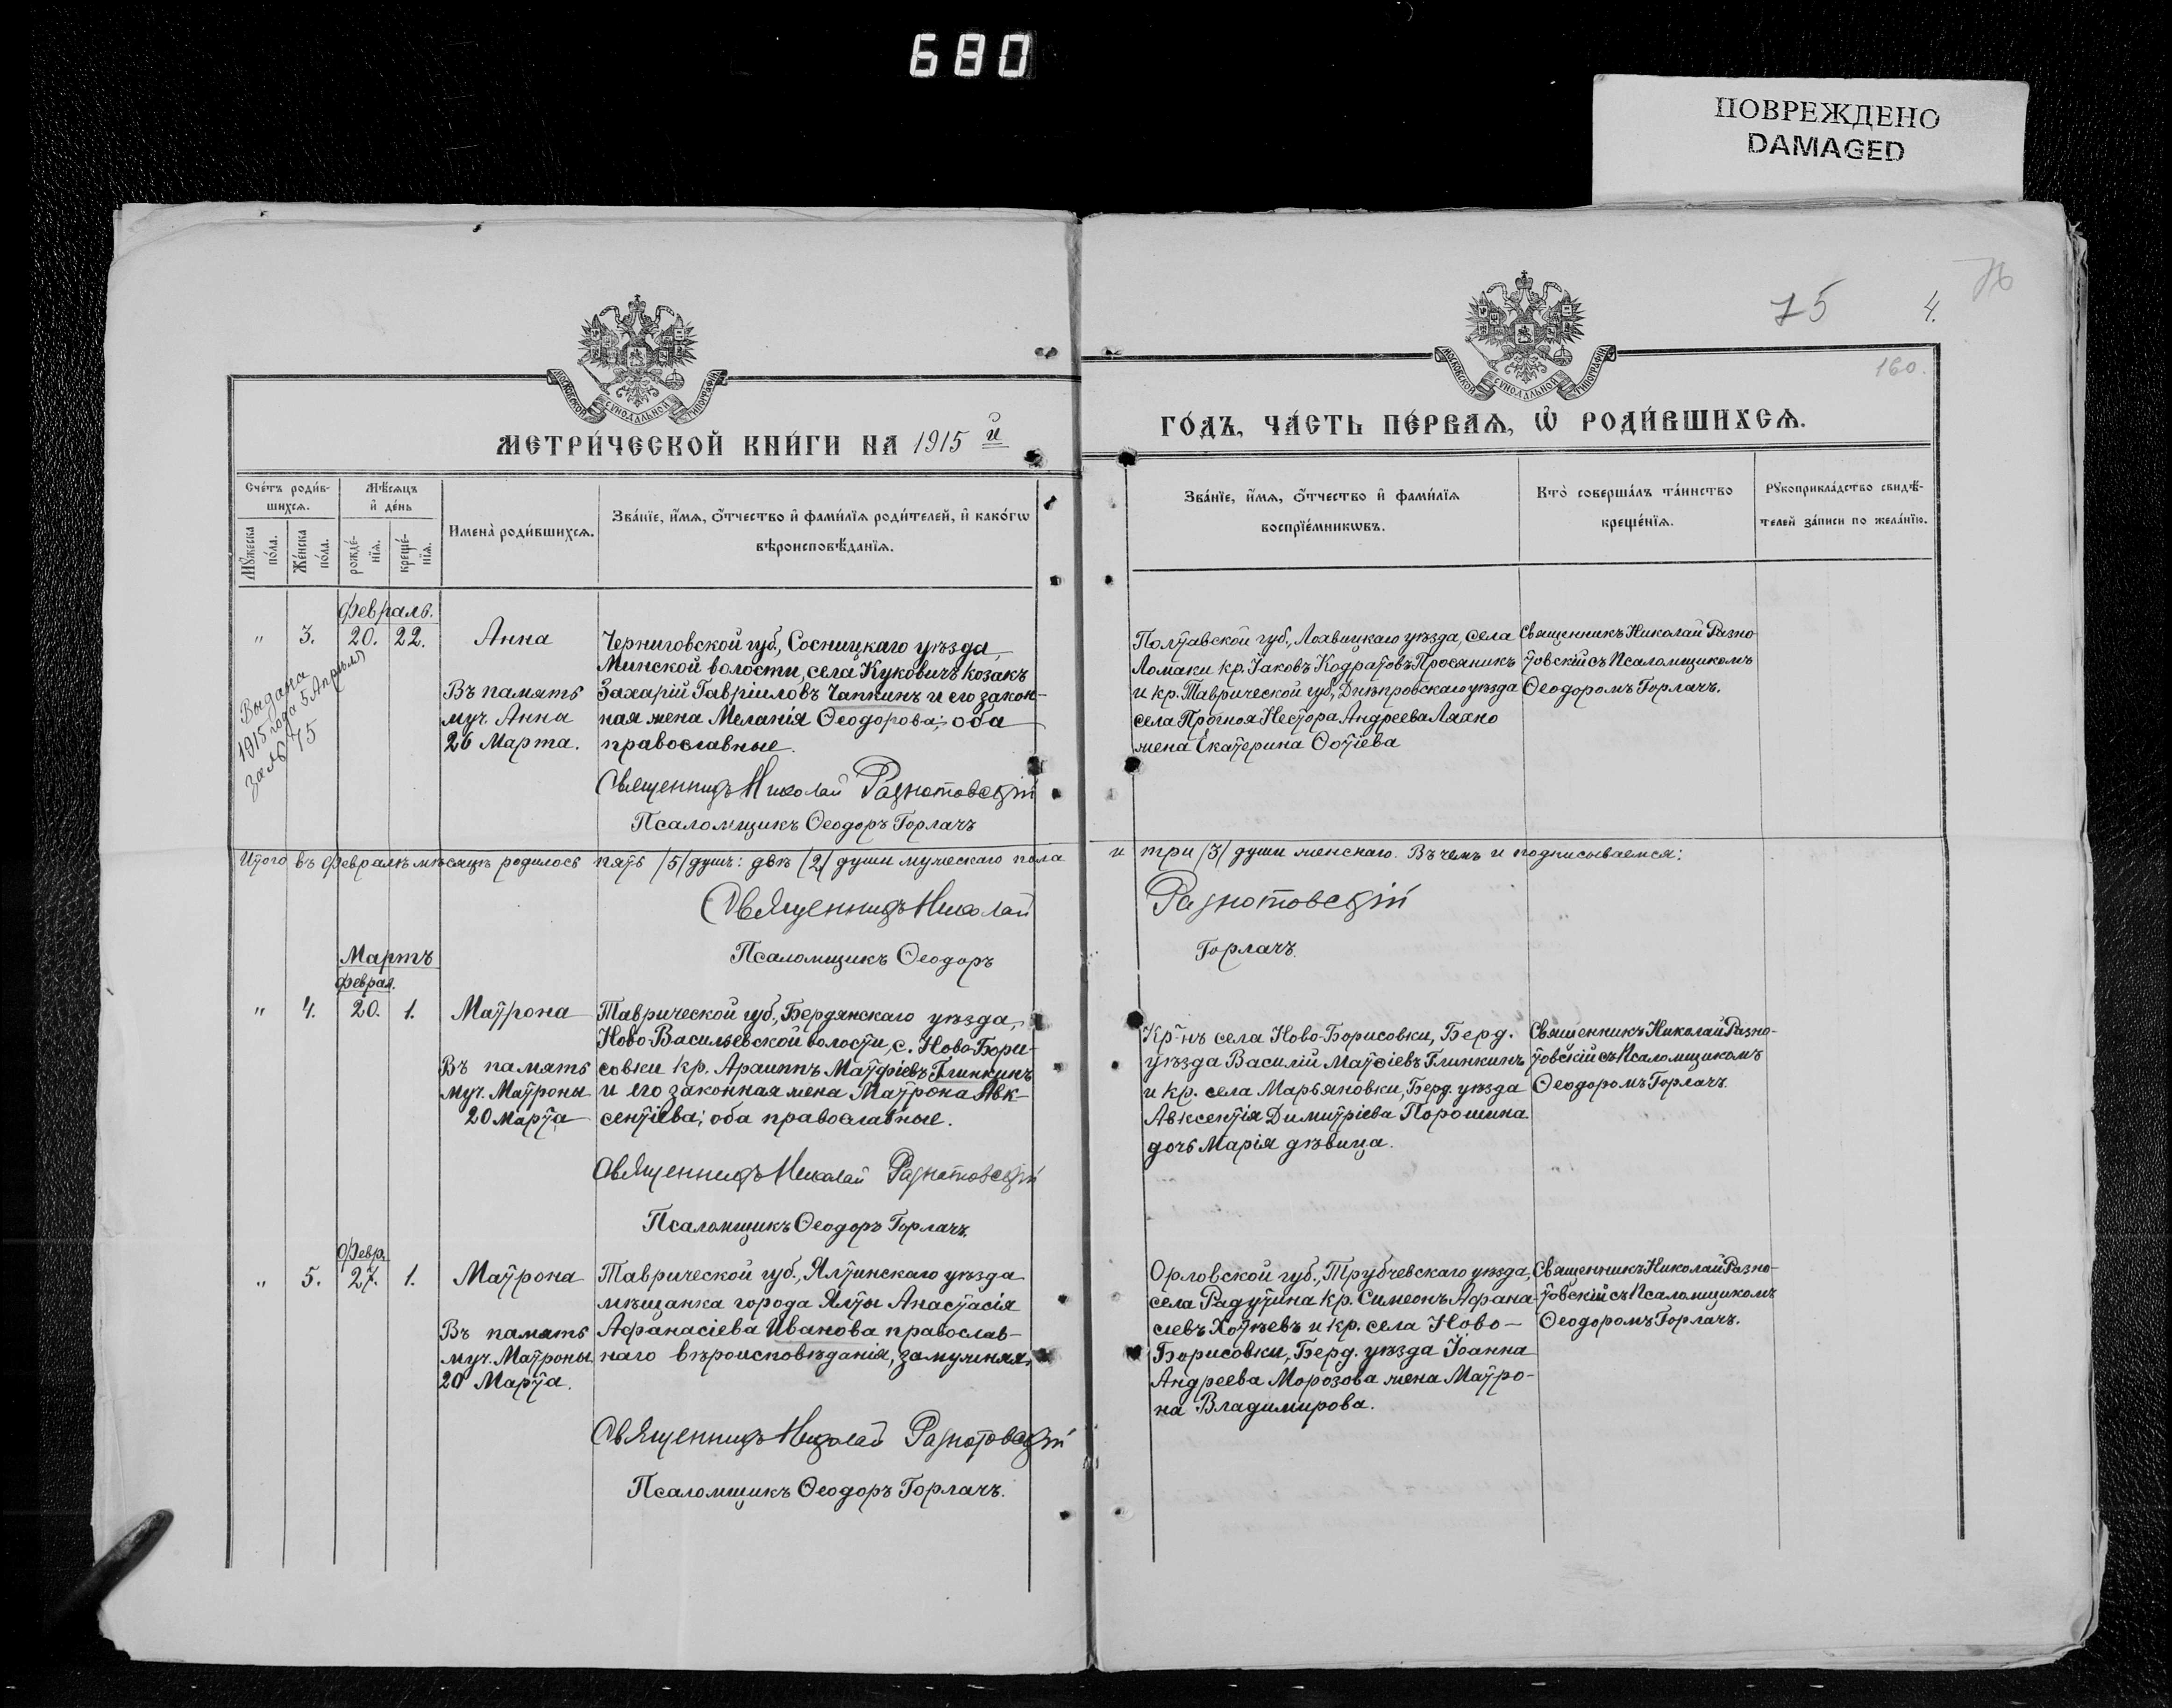 680
ПОВРЕЖДЕНО
DAMAGED
75
4.
76
160.
МОСКОВСКОЙ СѴНОДАЛЬНОЙ ТИПОГРАФІИ
МОСКОВСКОЙ СѴНОДАЛЬНОЙ ТИПОГРАФІИ
МЕТРИ́ЧЕСКОЙ КНИ́ГИ НА 1915 й
ГО́ДЪ, ЧА́СТЬ ПЕ́РВАѦ, Ѡ҆ РОДИ́ВШИХСѦ.
Сче́тъ роди́в-
шихсѧ.
Мꙋ́жеска
по́ла.
Же́нска
по́ла.
Мѣ́сѧцъ
и҆ де́нь
рожде́-
нїѧ.
креще́-
нїѧ.
Имена̀ роди́вшихсѧ.
Зва́нїе, и҆́мѧ, ѻ҆́тчество и҆ фами́лїѧ роди́телей, и҆ како́гѡ
вѣроисповѣ́данїѧ.
Зва́нїе, и҆́мѧ, ѻ҆́тчество и҆ фами́лїѧ
воспрїе́мникѡвъ.
Кто̀ соверша́лъ та́инство
креще́нїѧ.
Рꙋкоприкла́дство свидѣ́-
телей за́писи по жела́нїю.
Февраль.
" 3. 20. 22.
Анна
Въ память
муч. Анна
26 Марта.
Выдана
1915 года 5 Апрѣля
за № 75
Черниговской губ., Сосницкаго уѣзда,
Минской волости, села Куковичъ козакъ
Захарій Гавріиловъ Чаплинъ и его закон-
ная жена Меланія Ѳеодорова; оба
православные.
Священникъ Николай Разнотовскій
Псаломщикъ Ѳеодоръ Горлачъ
Полтавской губ., Лохвицкаго уѣзда, села
Ломаки кр. Іаковъ Кодратовъ Просяникъ
и кр. Таврической губ., Днѣпровскаго уѣзда
села Прогноя Нестора Андреева Ляхно
жена Екатерина Фотіева
Священникъ Николай Разно-
товскій съ Псаломщикомъ
Ѳеодоромъ Горлачъ.
Итого въ Февралѣ мѣсяцѣ родилось пять /5/ душъ: двѣ /2/ души мужескаго пола и три /3/ души женскаго. Въ чемъ и подписываемся:
Священникъ Николай Разнотовскій
Псаломщикъ Ѳеодоръ Горлачъ.
Мартъ
Феврал.
" 4. 20. 1.
Матрона
Въ память
муч. Матроны
20 Марта
Таврической губ., Бердянскаго уѣзда,
Ново-Васильевской волости, с. Ново-Бори-
совки кр. Архиппъ Матфіевъ Глинкинъ
и его законная жена Матрона Авк-
сентіева; оба православные.
Священникъ Николай Разнотовскій
Псаломщикъ Ѳеодоръ Горлачъ.
Кр-нъ села Ново-Борисовки, Берд.
уѣзда Василій Матѳіевъ Глинкинъ
и кр. села Марьяновки, Берд. уѣзда
Авксентія Димитріева Порошина
дочь Марія дѣвица.
Священникъ Николай Разно-
товскій съ Псаломщикомъ
Ѳеодоромъ Горлачъ.
Февр.
" 5. 27. 1.
Матрона
Въ память
муч. Матроны
20 Марта.
Таврической губ., Ялтинскаго уѣзда
мѣщанка города Ялты Анастасія
Афанасіева Иванова православ-
наго вѣроисповѣданія, замужняя,
Священникъ Николай Разнотовскій
Псаломщикъ Ѳеодоръ Горлачъ.
Орловской губ., Трубчевскаго уѣзда,
села Радутина кр. Симеонъ Афана-
сіевъ Хотѣевъ и кр. села Ново-
Борисовки, Берд. уѣзда Іоанна
Андреева Морозова жена Матро-
на Владимирова.
Священникъ Николай Разно-
товскій съ Псаломщикомъ
Ѳеодоромъ Горлачъ.